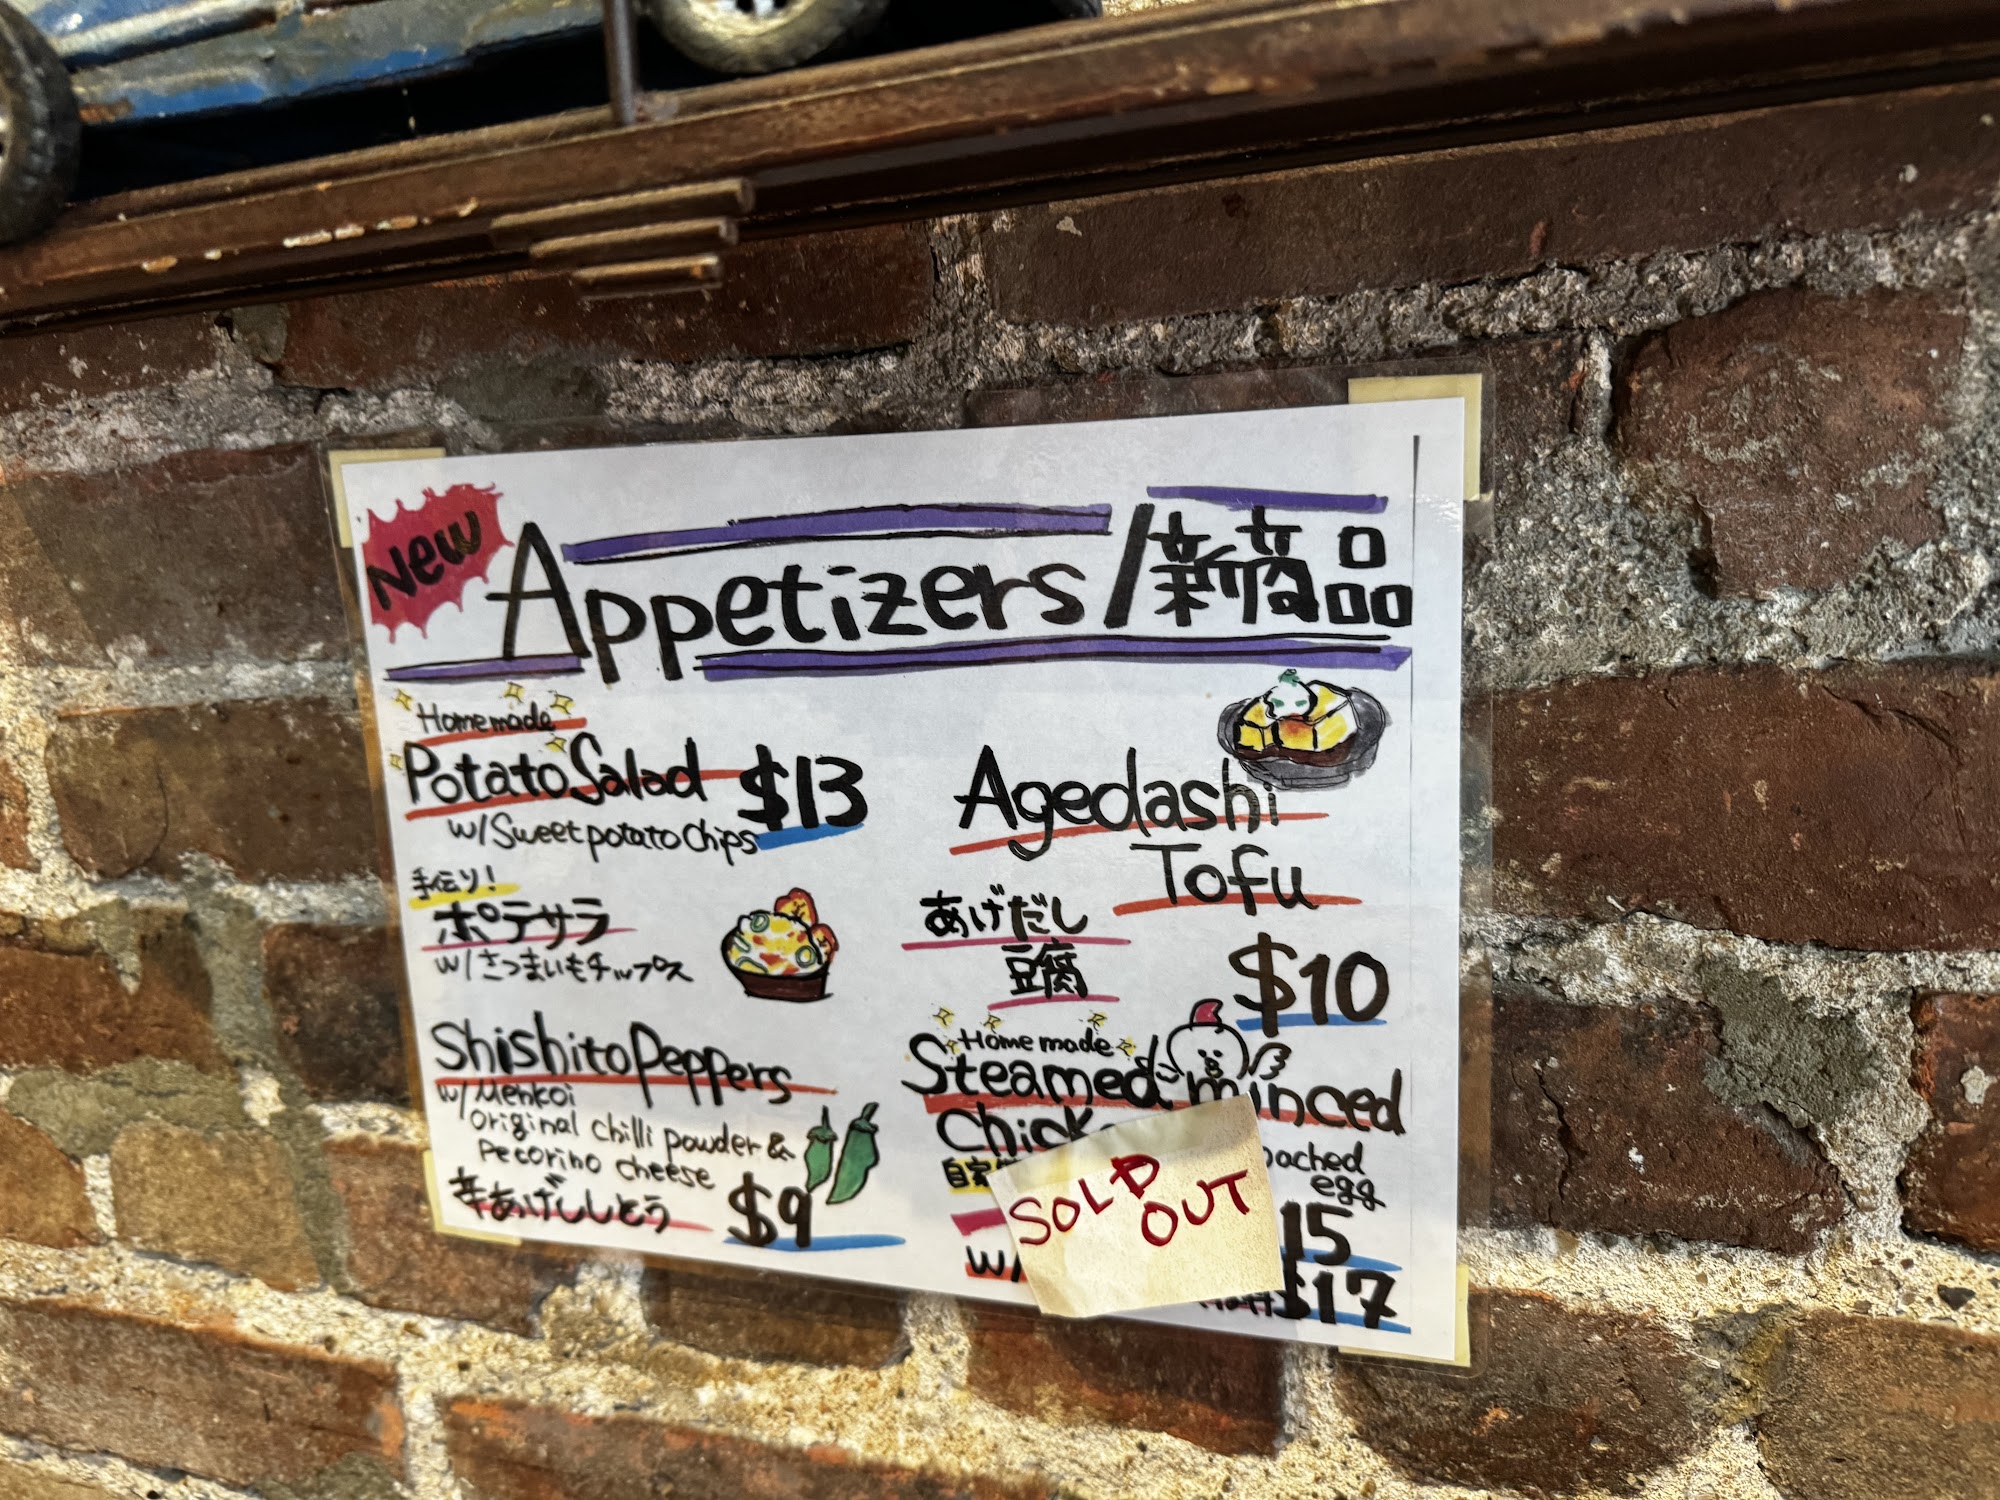 New
Appetizers/新商品
Homemade
Potato Salad $13
w/Sweet potato Chips
手作り!
ポテサラ
w/さつまいもチップス
Shishito Peppers
w/Menkoi
original chilli powder &
Pecorino cheese
辛あげししとう $9
Agedashi
Tofu
あげだし
豆腐
$10
Homemade
Steamed minced
Chick
自家
egg
SOLD
OUT
15
w/
$17